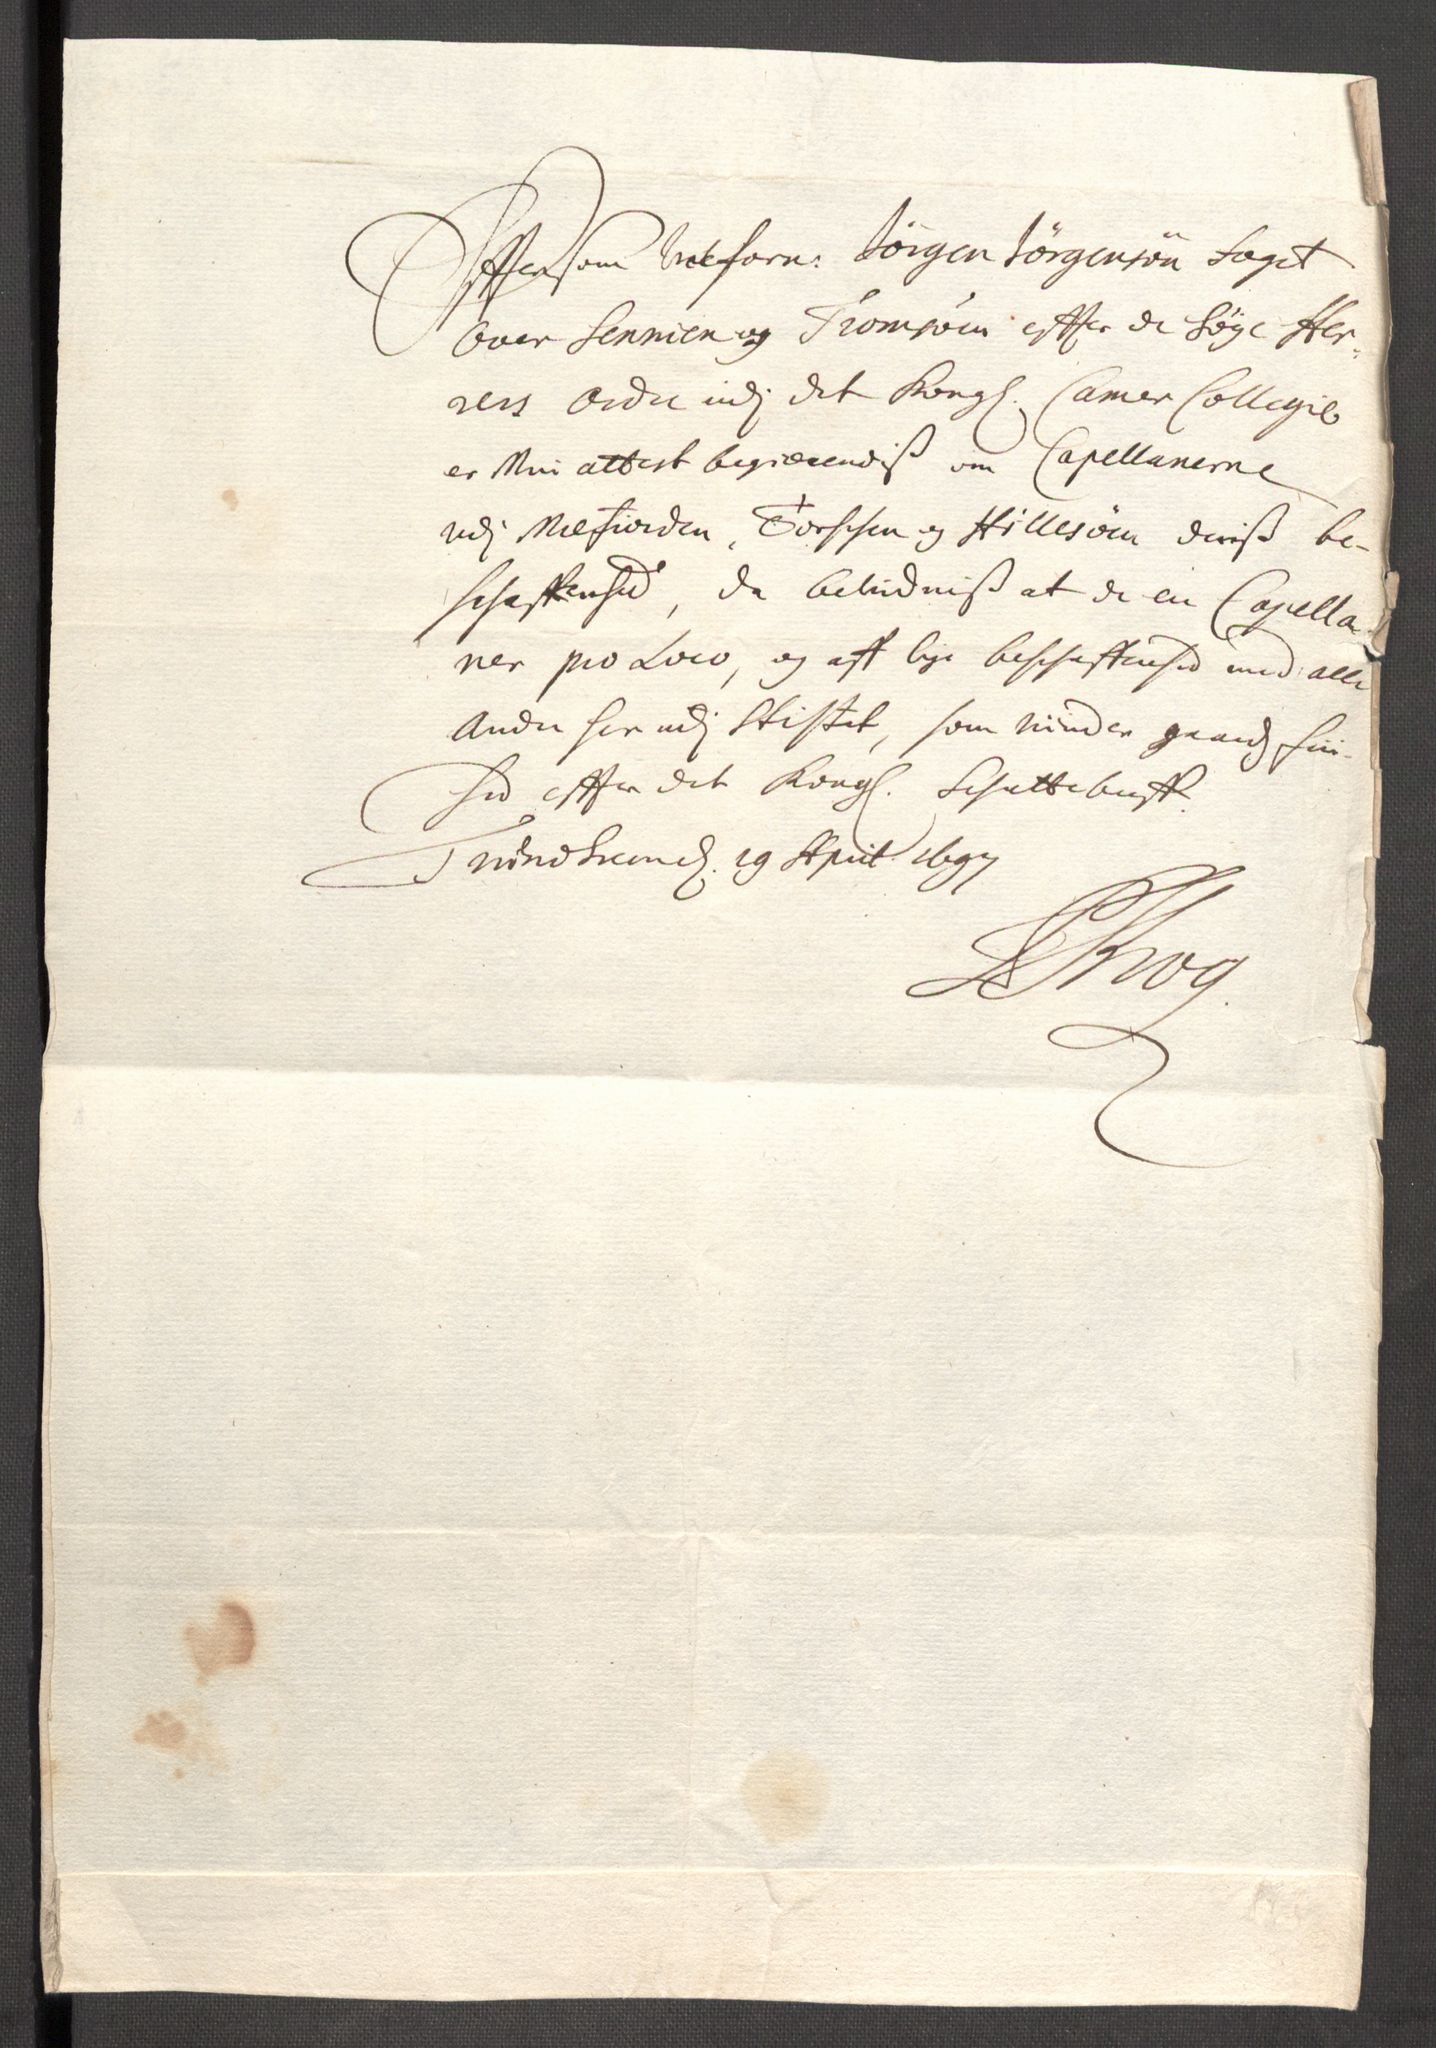 Efftersom Velforn: Jörgen Jörgensön Foget
over Sennien og Tromsöen effter de Höye Her-
rers Ordre udj det Kongl. Camer Collegio
er Min attest begierendiß om Capellanerne
udj Mefiorden, Torschen og Hillesöen deriß be-
schaffenhed, da betydniß at de ere Capella-
ner pro Loco, og aff lige beschaffenhed med alle
andre her udj Stiftet, som nyder gaardz fri-
hed effter det Kongl. Schattebreff.
Trundhiemb. 29 April 1697
P Krog.